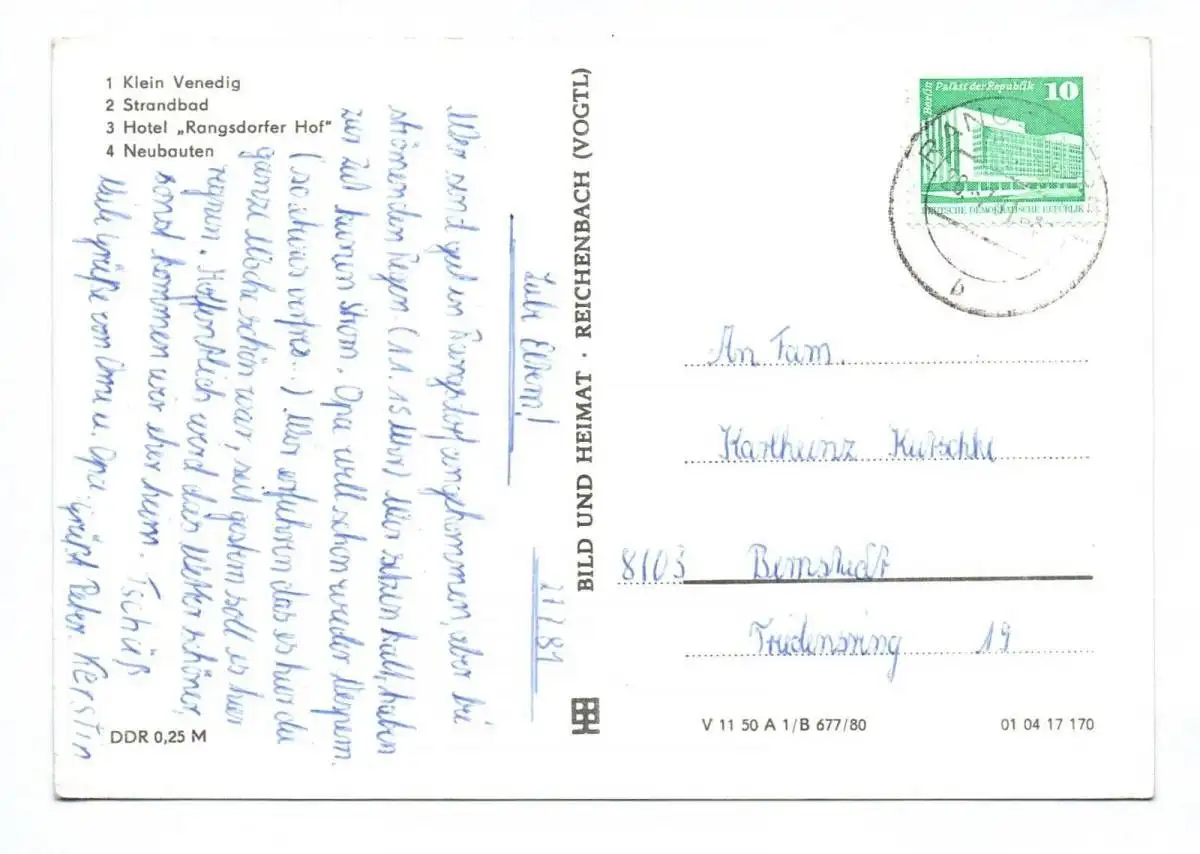 1 Klein Venedig
2 Strandbad
3 Hotel „Rangsdorfer Hof"
4 Neubauten
21.7.81
Liebe Eltern!
Wir sind gut in Rangsdorf angekommen, aber bei
strömenden Regen. (11.15 Uhr) Wir sitzen halt, haben
zur Zeit keinen Strom. Opa will schon wieder Vespern.
(so etwas verfres..) Wir erfuhren das es hier die
ganze Woche schön war, seit gestern soll es hier
regnen. Hoffentlich wird das Wetter schöner,
sonst kommen wir eher heim. Tschüß
Viele Grüße von Oma u. Opa. grüßt Peter. Kerstin
DDR 0,25 M
BILD UND HEIMAT · REICHENBACH (VOGTL)
Berlin Palast der Republik 10
DEUTSCHE DEMOKRATISCHE REPUBLIK
RANG
b
An Fam.
Karlheinz Kutschke
8103 Bernstadt
Friedensring 19
V 11 50 A 1/B 677/80
01 04 17 170